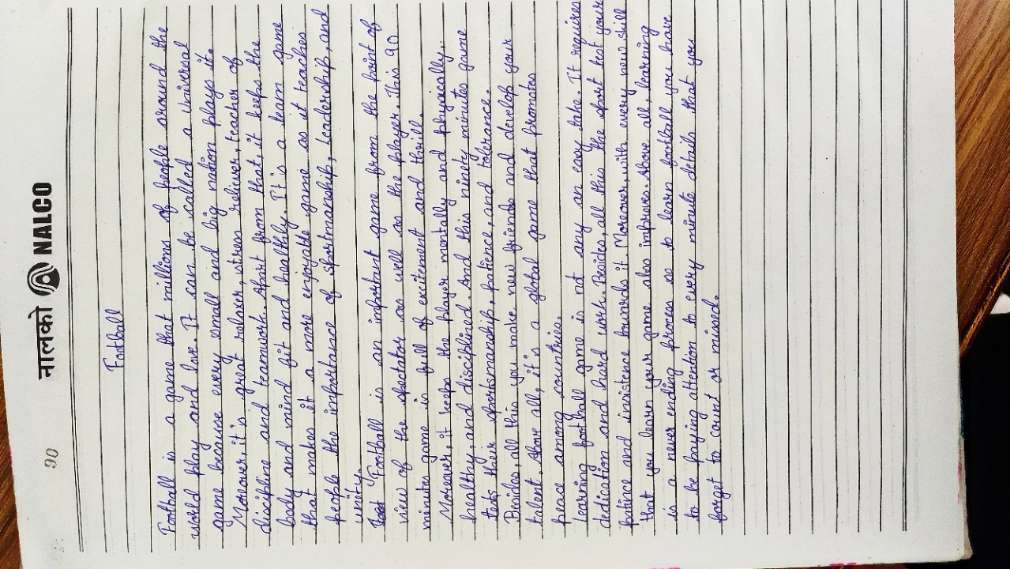 90
नालको NALCO
Football
Football is a game that millions of people around the
world play and love. It can be called a universal
game because every small and big nation plays it.
Moreover, it is great relaxer, stress reliever, teacher of
discipline and teamwork. Apart from that, it keeps the
body and mind fit and healthy. It is a team game
that makes it a more enjoyable game as it teaches
people the importance of sportmanship, Leadership, and
unity.
Football is an important game from the point of
view of the spectator as well as the player. This 90
minutes game is full of excitement and thrill.
Moreover, it keeps the player mentally and physically,
healthy, and disciplined. And this ninty minutes game
tests their sportsmanship, patience, and tolerance.
Besides, all this you make new friends and develop your
talent. Above all, it is a global game that promates
peace among countries.
Learning football game is not any an easy take. It requires
dedication and hard work. Besides, all this the sport test your
patince and insistence towards it. Moreover, with every new skill
that you learn your game also improve. Above all, learning
is a never ending proces so to learn football you have
to be paying attention to every minute details that you
forget to count or missed.